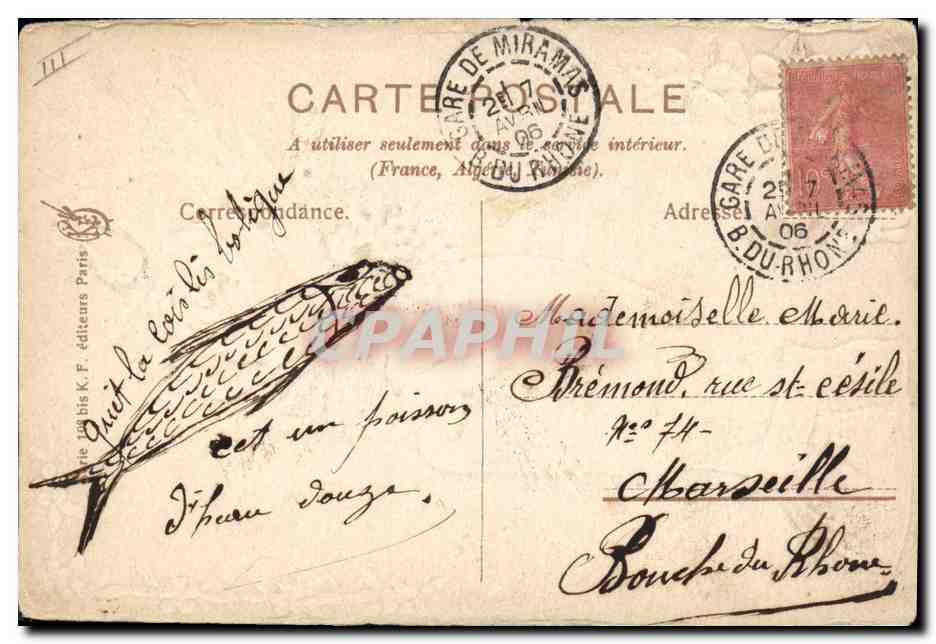 III
CARTE POSTALE
A utiliser seulement dans le service intérieur.
(France, Algérie, Tunisie).
Correspondance.
Adresse
GARE DE MIRAMAS
2E 7
AVRIL
06
B. DU RHONE
GARE DE MIRAMAS
2E 7
AVRIL
06
B. DU-RHONE
10
bis K. F. éditeurs Paris
la
cet un poisson
d'heure douze.
Mademoiselle Marie.
Brémond, rue st- césile
Nos 74-
Marseille
Bouche du Rhone
CPAPHIL